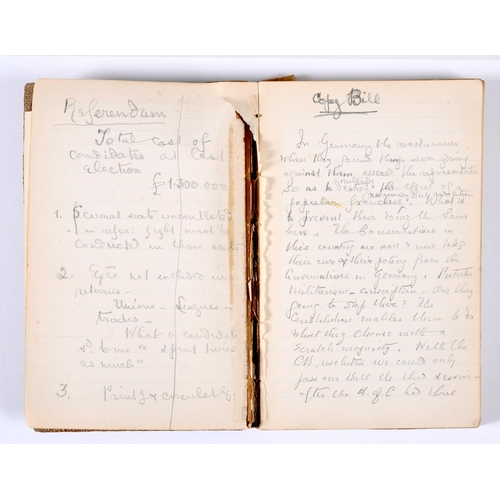 Referendum
Total cost of
candidates at last
election
£1.300 000
1. Several seats uncontested
- in refer: fight must be
conducted in those seats
2. Exps not included in
returns -
Unions - Leagues -
trades -
What a candidate
sd to me "spent twice
as much"
3. Printg & circulatg:
Copy Bill
In Germany the
when they found things were going
against them,
so as to the effect of
popular franchise. What is
to prevent their doing the same
here. The Conservatives in
this country are now more & more taking
their cue & their policy from the
Conservatives in Germany. Protection
Militarism - conscription. Are they
going to stop there? The
Constitution enables them to do
what they choose with a
scratch majority. With the
CB resolutions we could only
pass our Bill the third session
after the H. of C had three